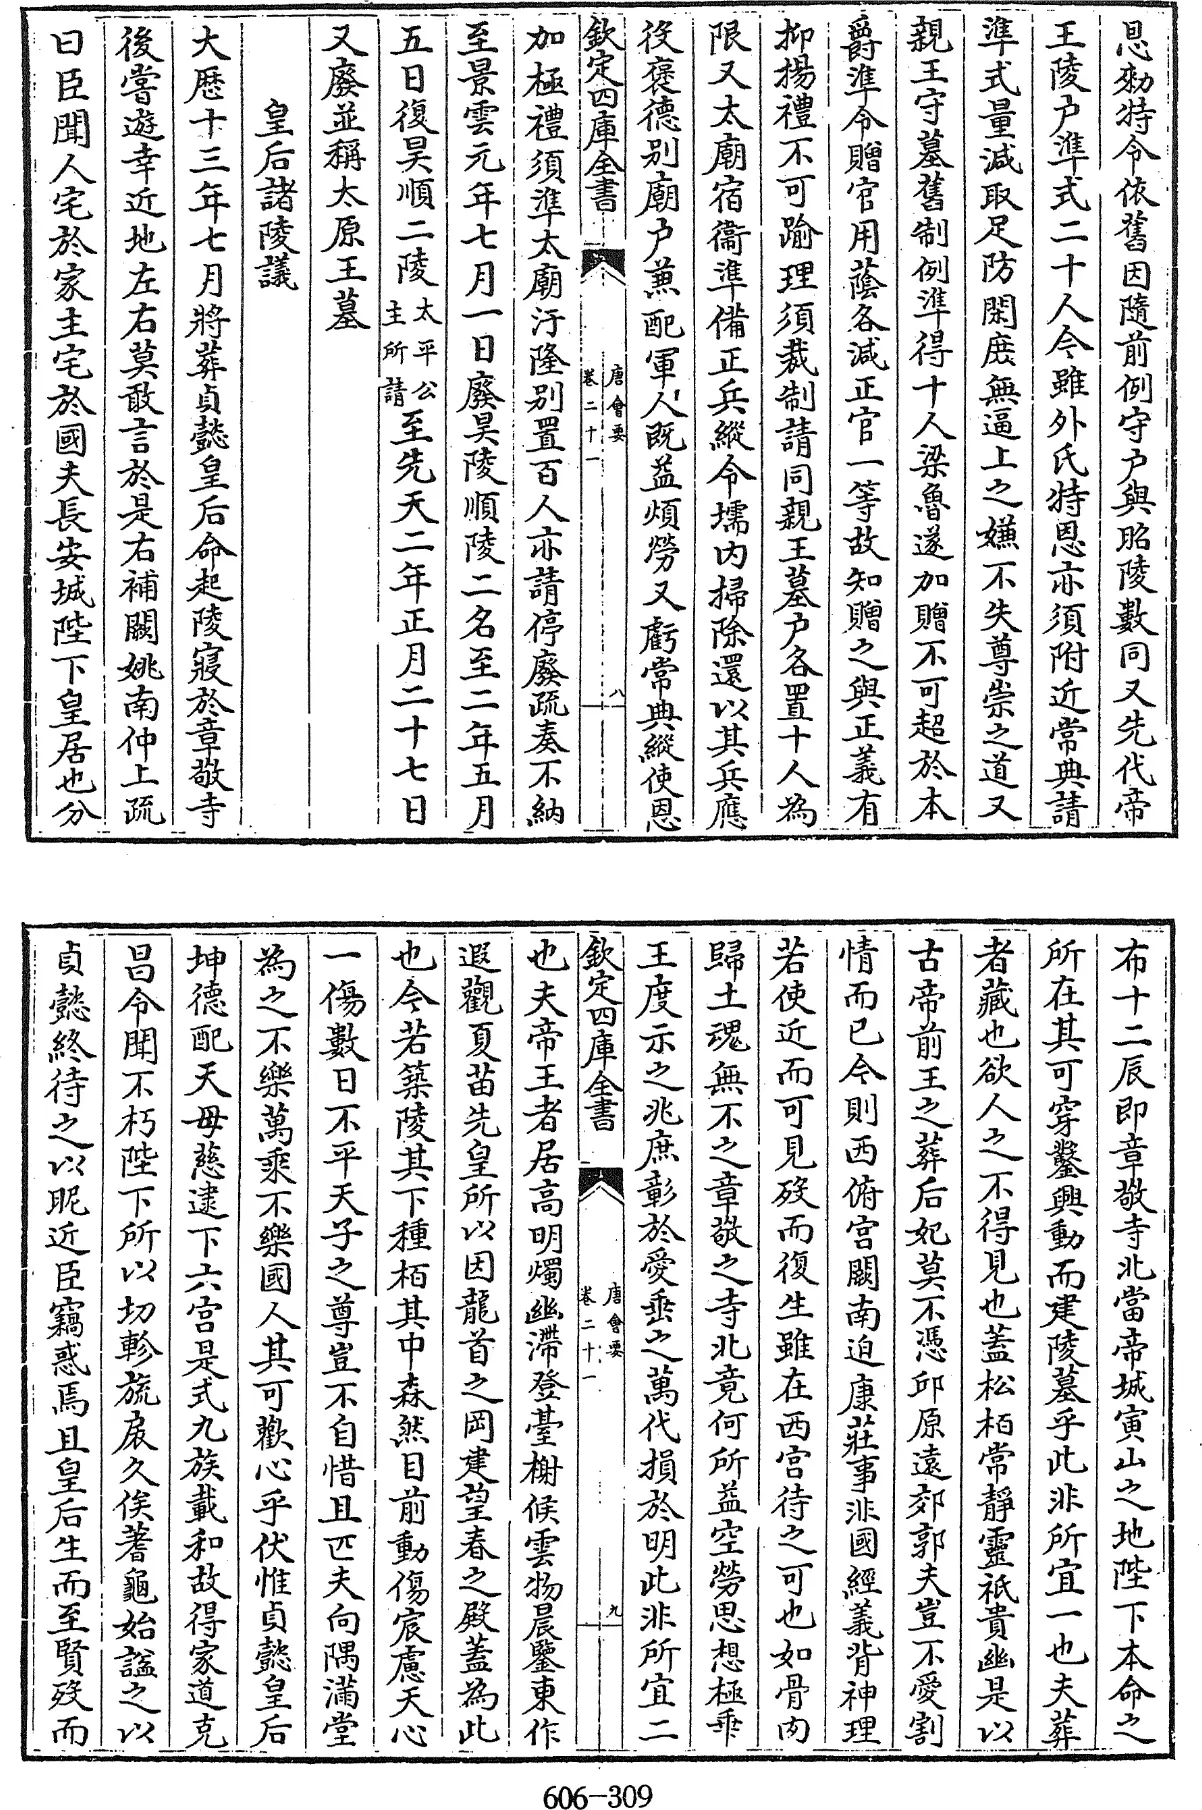 恩勑特令依舊因隨前例守户與昭陵數同又先代帝
王陵户準式二十人今雖外氏特恩亦須附近常典請
準式量減取足防閑庶無逼上之嫌不失尊崇之道又
親王守墓舊制例準得十人梁魯遂加贈不可超於本
爵準令贈官用蔭各減正官一等故知贈之與正義有
抑揚禮不可踰理須裁制請同親王墓户各置十人為
限又太廟宿衞準備正兵縱令壖内掃除還以其兵應
役褒德别廟户兼配軍人既益煩勞又虧常典縱使恩
欽定四庫全書
唐會要
卷二十一
八
加極禮須準太廟汙隆别置百人亦請停廢疏奏不納
至景雲元年七月一日廢昊陵順陵二名至二年五月
五日復昊順二陵太平公主所請至先天二年正月二十七日
又廢並稱太原王墓
皇后諸陵議
大厯十三年七月將葬貞懿皇后命起陵寢於章敬寺
後嘗遊幸近地左右莫敢言於是右補闕姚南仲上疏
曰臣聞人宅於家主宅於國夫長安城陛下皇居也分
布十二辰即章敬寺北當帝城寅山之地陛下本命之
所在其可穿鑿興動而建陵墓乎此非所宜一也夫葬
者藏也欲人之不得見也蓋松柏常靜靈祇貴幽是以
古帝前王之葬后妃莫不憑邱原遠郊郭夫豈不愛割
情而已今則西俯宫闕南迫康莊事非國經義背神理
若使近而可見殁而復生雖在西宫待之可也如骨肉
歸土魂無不之章敬之寺北竟何所益空勞思想極乖
王度示之兆庶彰於愛垂之萬代損於明此非所宜二
欽定四庫全書
唐會要
卷二十一
九
也夫帝王者居高明燭幽滯登臺榭候雲物晨鑒東作
遐觀夏苗先皇所以因龍首之岡建望春之殿蓋為此
也今若築陵其下種栢其中森然目前動傷宸慮天心
一傷數日不平天子之尊豈不自惜且匹夫向隅滿堂
為之不樂萬乘不樂國人其可歡心乎伏惟貞懿皇后
坤德配天母慈逮下六宫是式九族載和故得家道克
昌令聞不朽陛下所以切軫旒扆久俟蓍龜始諡之以
貞懿終待之以昵近臣竊惑焉且皇后生而至賢殁而
606-309